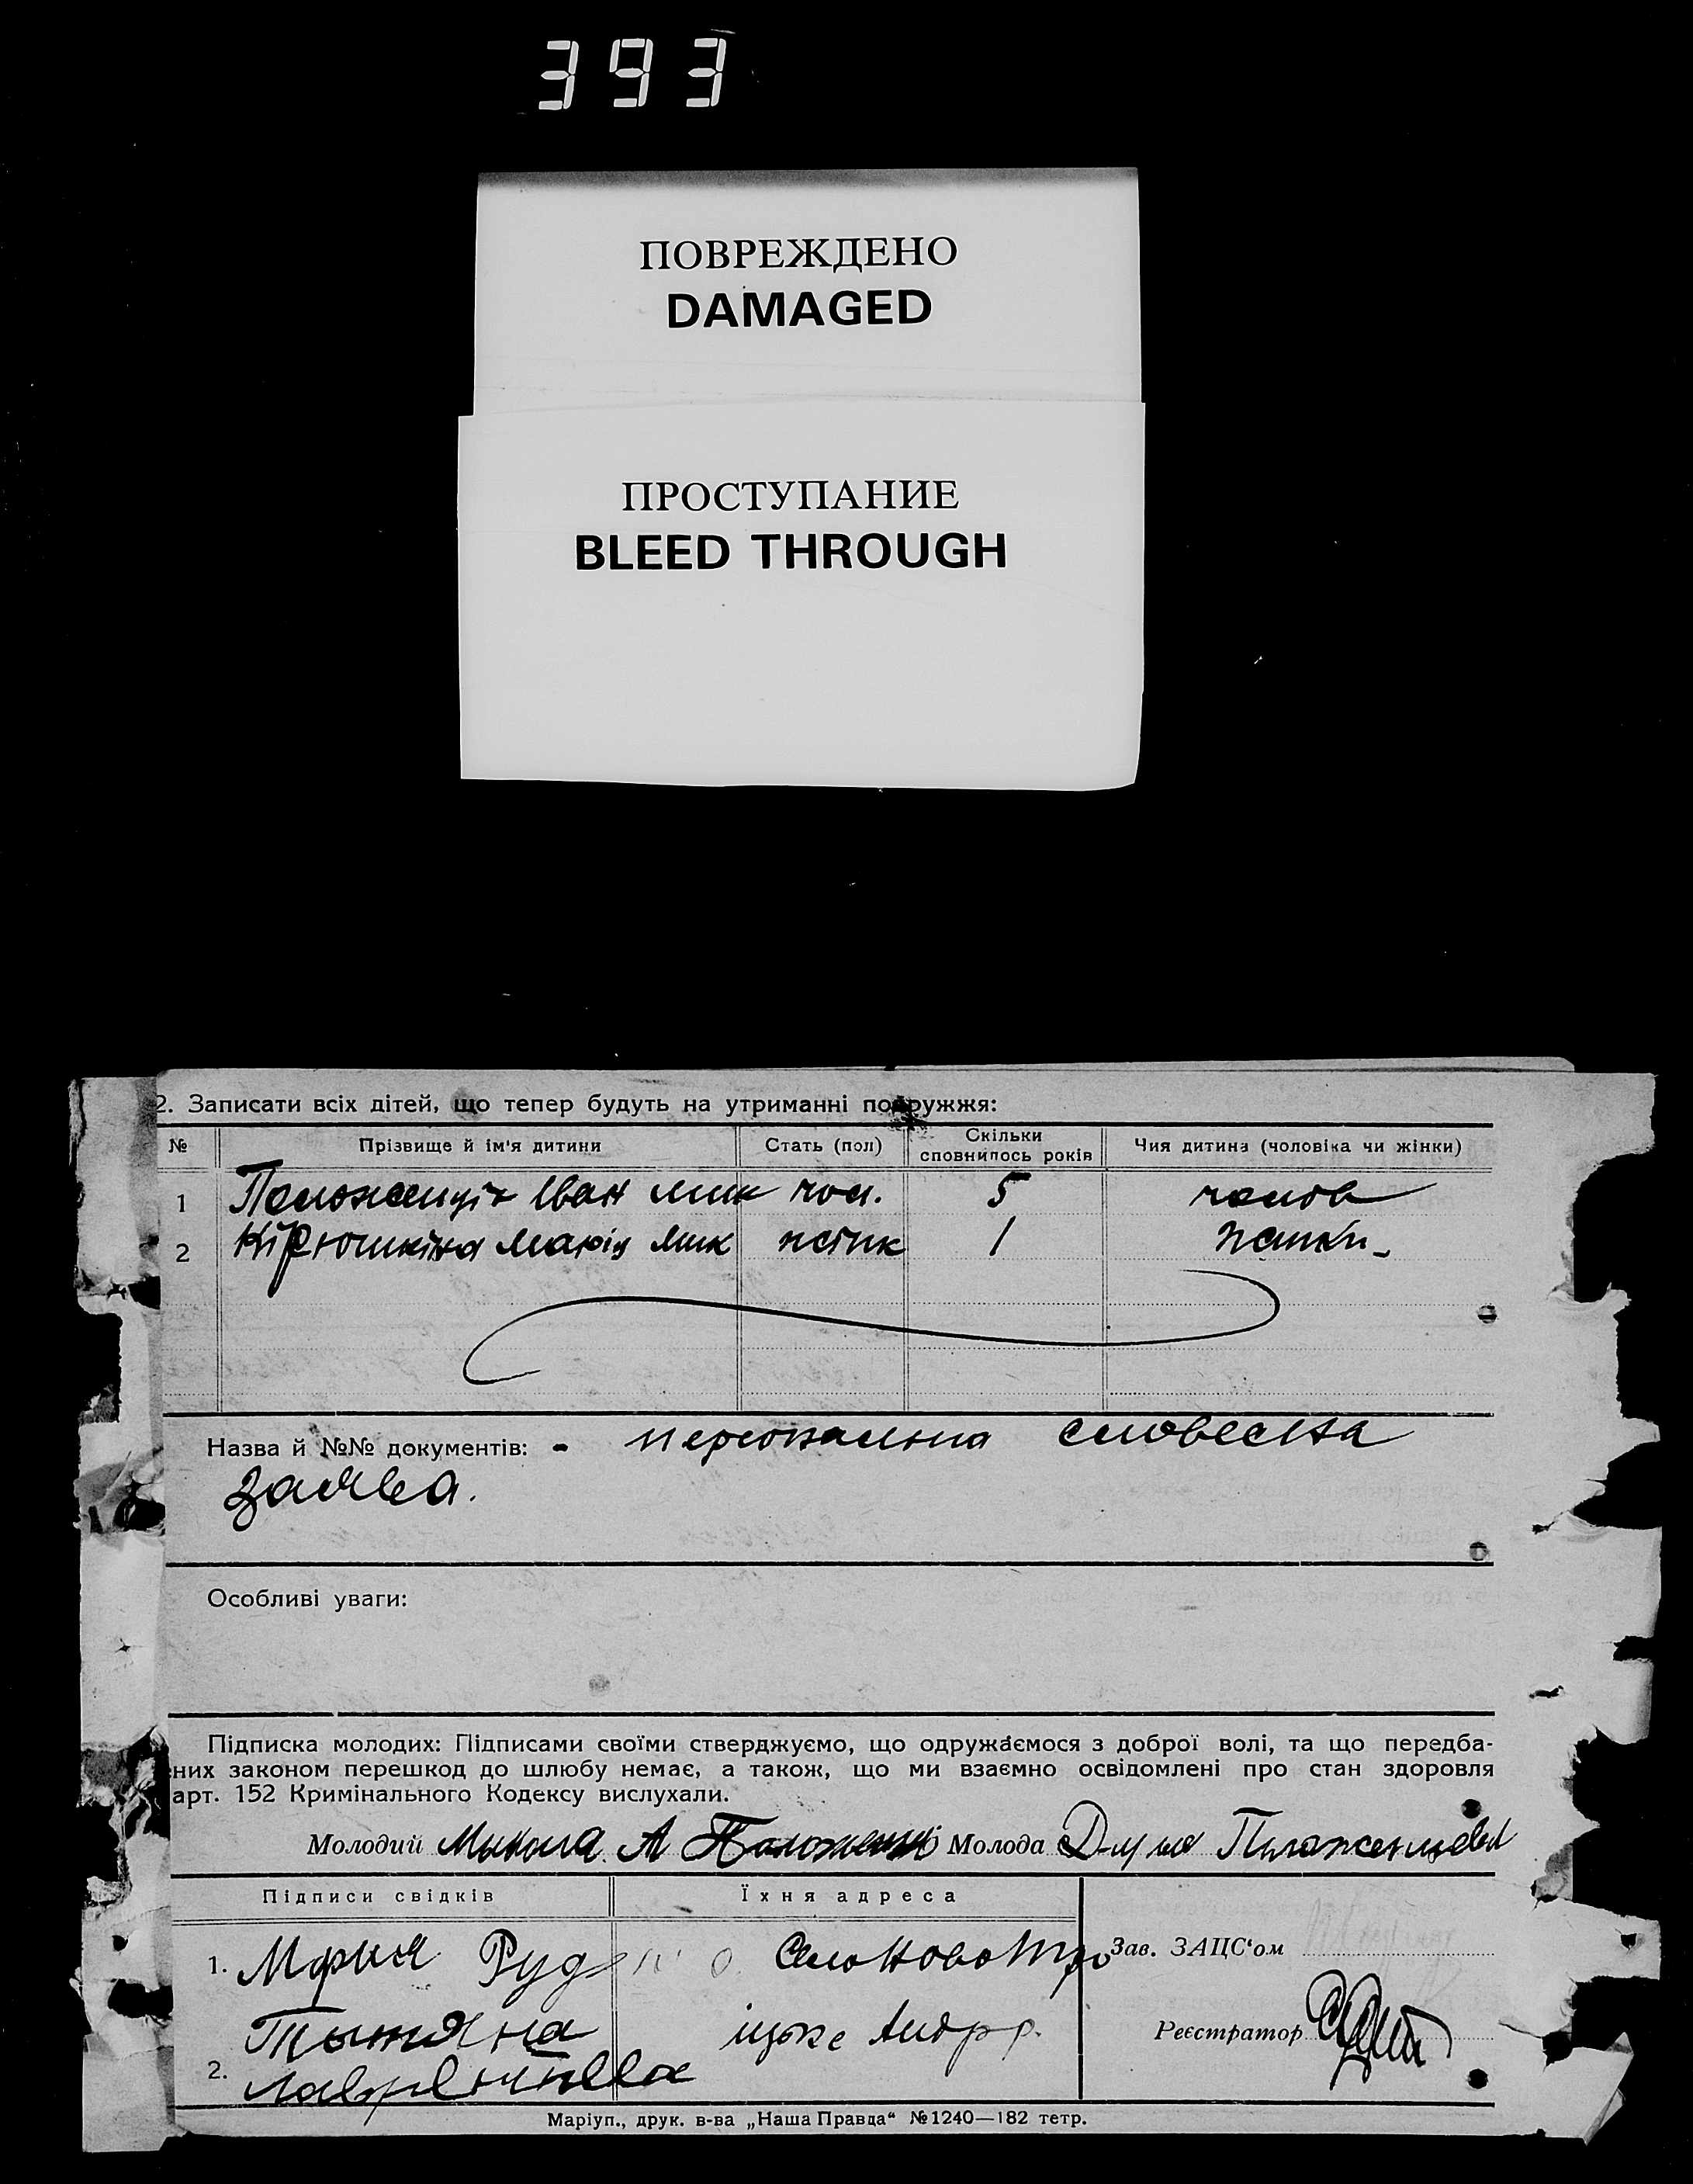 393
ПОВРЕЖДЕНО
DAMAGED
ПРОСТУПАНИЕ
BLEED THROUGH
2. Записати всіх дітей, що тепер будуть на утриманні подружжя:
№ Прізвище й ім'я дитини Стать (пол) Скільки сповнилось років Чия дитина (чоловіка чи жінки)
1 Іван Мик чол. 5 чолов
2 Кірюшкіна Марія Мик 1
Назва й №№ документів: - персональна словесна
заява.
Особливі уваги:
Підписка молодих: Підписами своїми стверджуємо, що одружаємося з доброї волі, та що передба-
них законом перешкод до шлюбу немає, а також, що ми взаємно освідомлені про стан здоровля
арт. 152 Кримінального Кодексу вислухали.
Молодий Микола А Молода
Підписи свідків Їхня адреса
1. Село Ново Тро Зав. ЗАЦС'ом
їцьке Реєстратор
2.
Маріуп., друк. в-ва „Наша Правда“ №1240—182 тетр.